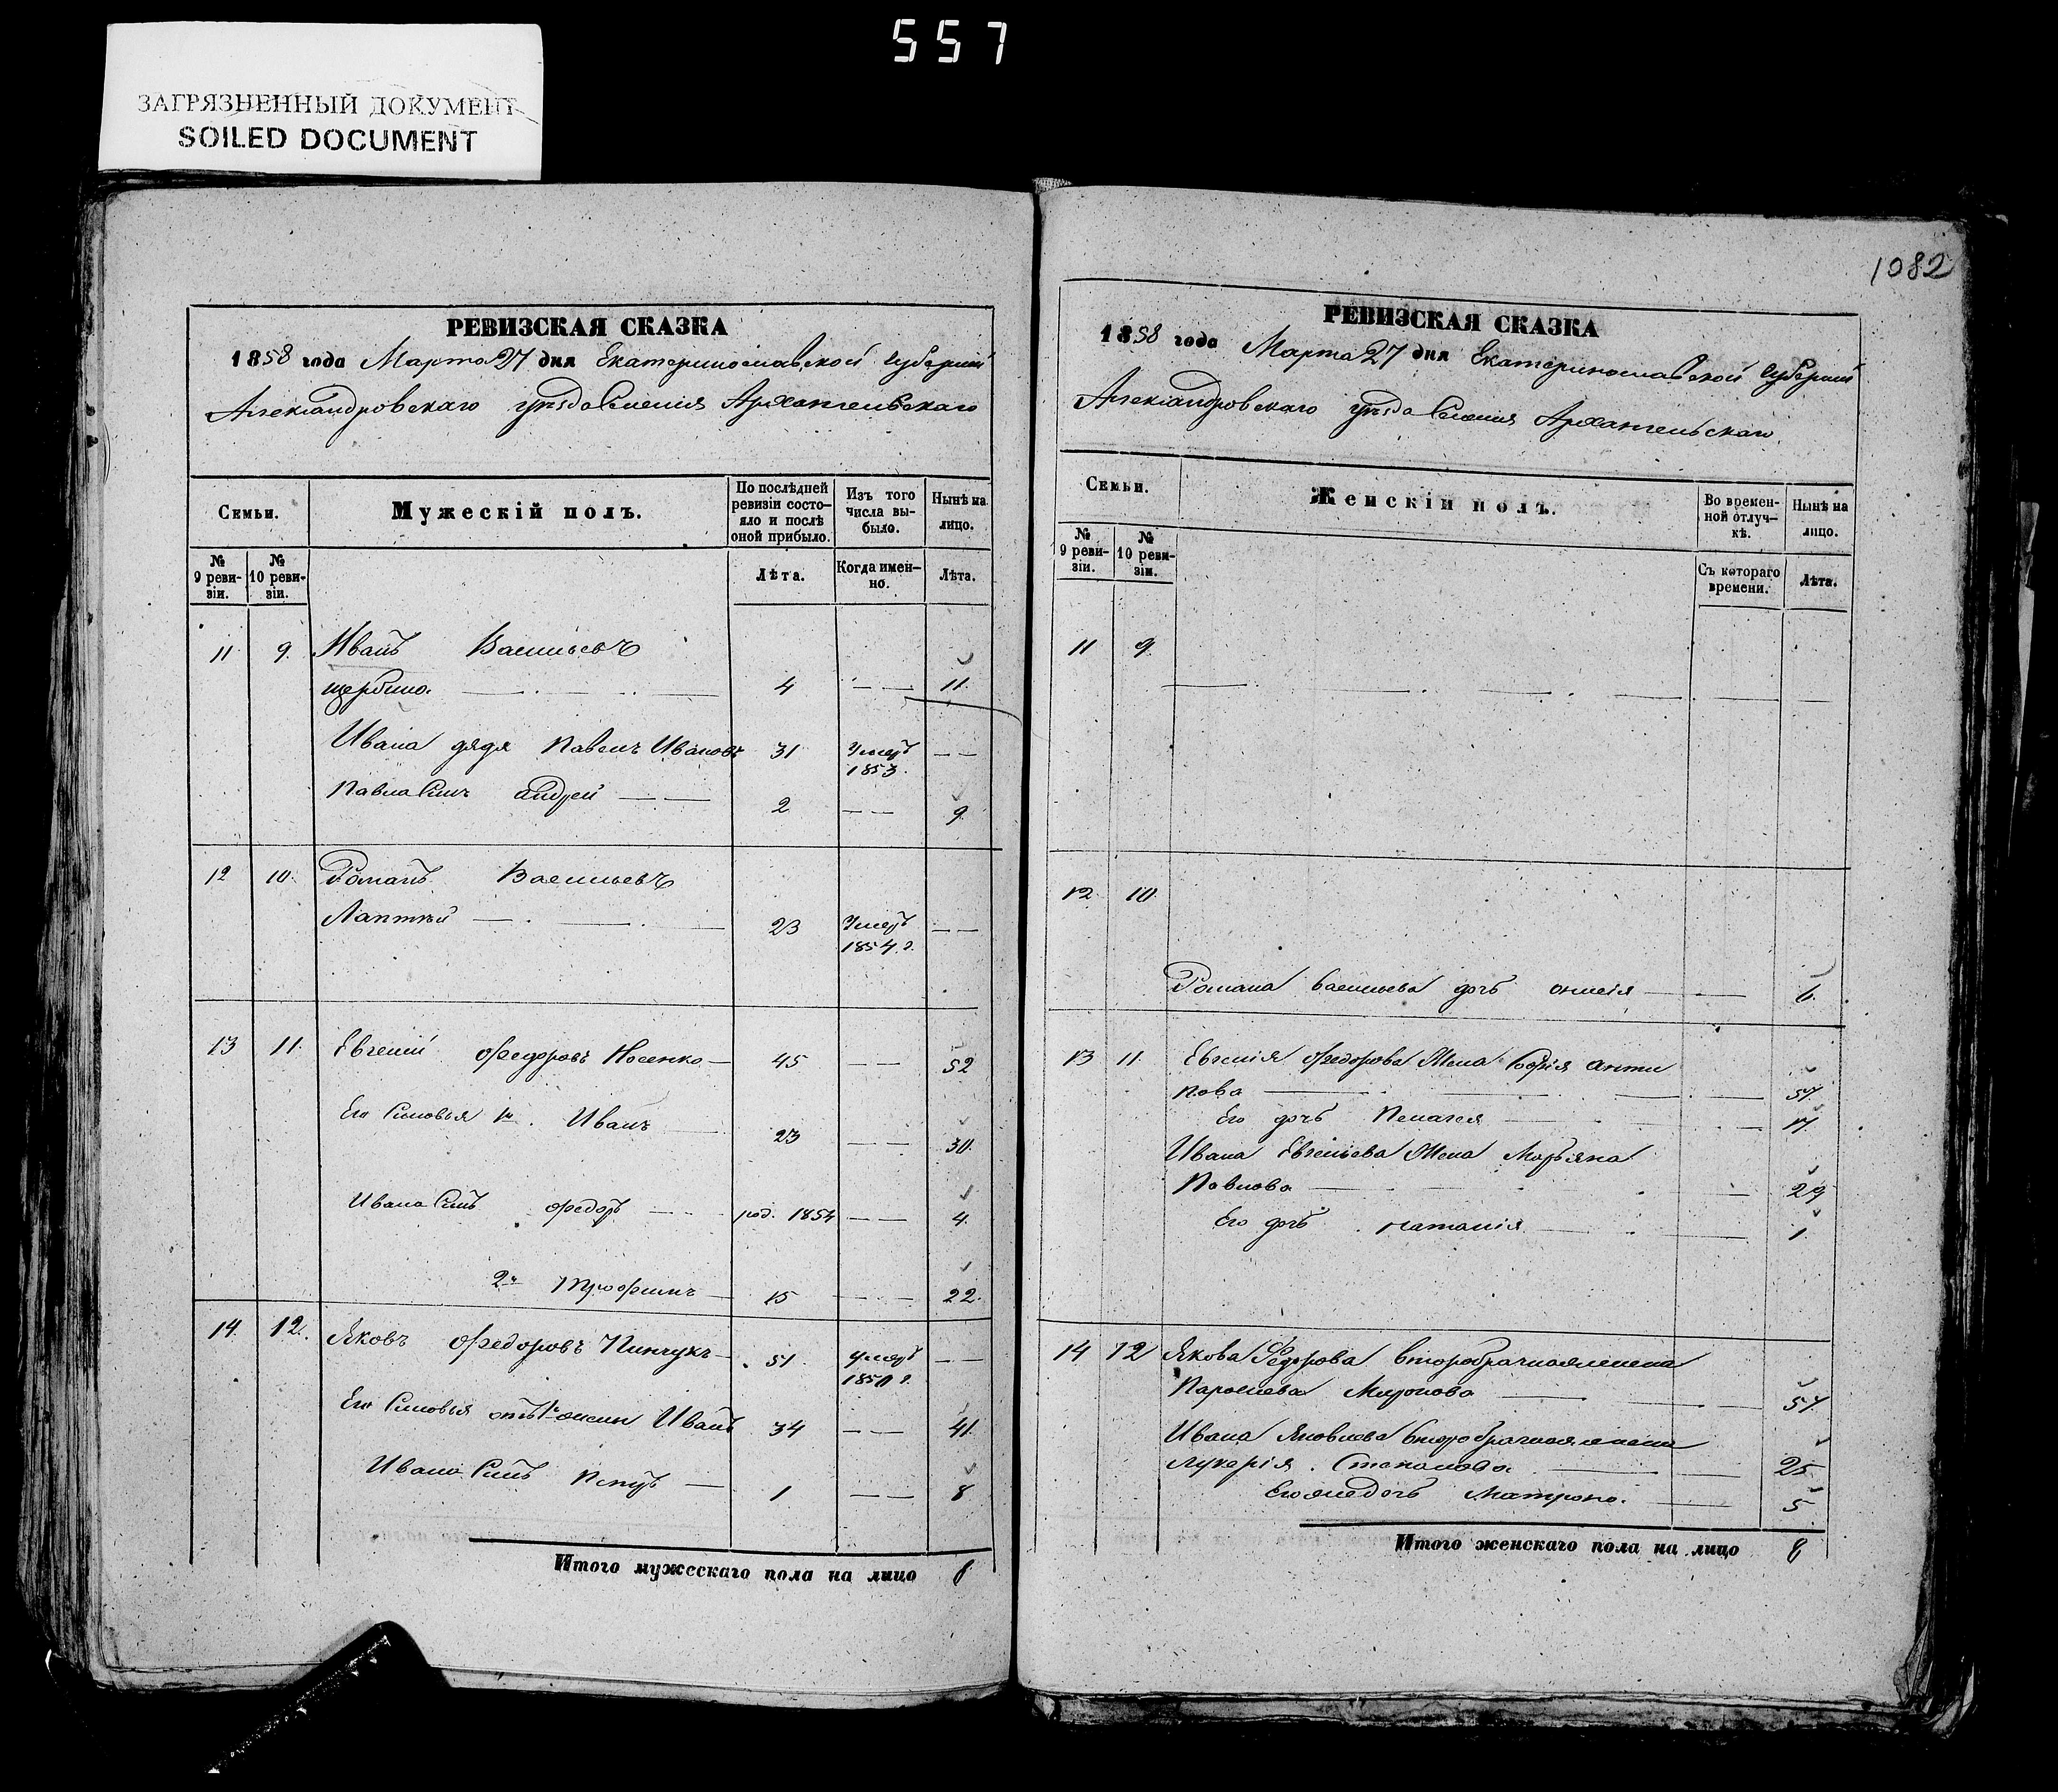 557
ЗАГРЯЗНЕННЫЙ ДОКУМЕНТ
SOILED DOCUMENT
РЕВИЗСКАЯ СКАЗКА
1858 года Марта 27 дня Екатеринославской губерніи
Александровскаго уѣзда Селенія Архангельскаго
Семьи.
Мужескій полъ.
По послѣдней ревизіи состояло и послѣ оной прибыло.
Изъ того числа выбыло.
Нынѣ на лицо.
№ 9 ревизіи.
№ 10 ревизіи.
Лѣта.
Когда именно.
Лѣта.
11 9. Иванъ Васильевъ
Щербина 4 11.
Ивана дядя Павелъ Ивановъ 31 Умеръ 1853.
Павла Сынъ Андрей 2 9
12 10. Романъ Васильевъ
Лаптѣй 23 Умеръ 1854 г.
13 11. Евгеній Федоровъ Носенко 45 52
Его Сыновья 1й Иванъ 23 30.
Ивана Сынъ Федоръ род. 1854 4.
2й Трофимъ 15 22.
14. 12. Яковъ Федоровъ Пинчукъ 51. Умеръ
Его Сыновья отъ 1й жены Иванъ 34 41.
Ивана Сынъ Петръ 1 8
Итого мужескаго пола на лицо 8
1082
РЕВИЗСКАЯ СКАЗКА
1858 года Марта 27 дня Екатеринославской губерніи
Александровскаго уѣзда Селенія Архангельскаго
Семьи.
Женскій полъ.
Во временной отлучкѣ.
Нынѣ на лицо.
№ 9 ревизіи.
№ 10 ревизіи.
Съ котораго времени.
Лѣта.
11 9.
12. 10.
Романа Васильева дочь 6.
13 11. Евгенія Федорова Жена Софія Анти
пова
Его дочь Пелагея 17.
Ивана Евгеніева Жена Марьяна
Павлова 29
Его дочь Наталія 1.
14 12 Якова Федорова второбрачная жена
Миронова
Ивана Яковлева второбрачная жена
Лукерія Степанова 25
Его же дочь Матрона. 5
Итого женскаго пола на лицо 8